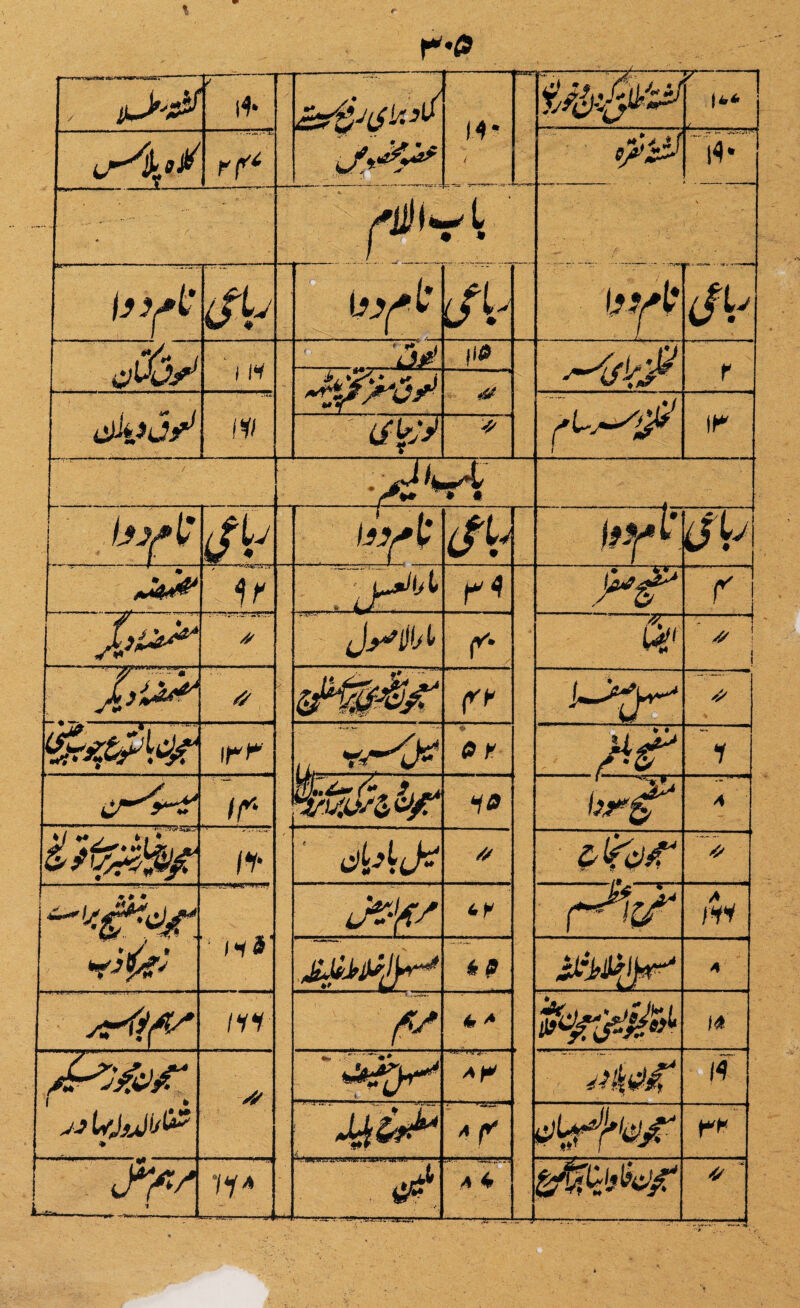 ۳۰۵
۱۷۷ کشتهٔ طلق کردن و خوردن ۱۹۰ کماد برای رفع سستے عضو مخصوص ۱۹۰ کشته طلا
۱۹۰ کشتهٔ نقره ۲۴۷ کلاه پلاس
باب اللام
رباعی نام دوا رباعی نام دوا رباعی نام دوا
۲ لخلخه برای سر ۱۱۵ لعوق ۱۱۶ لعوق کتان
〃 لعوق مغز تخم پیٹهہ
۱۳ لخلخهٔ سرسام 〃 لوز چای ۱۶۱ لعوق دیدان
باب المیم
رباعی نام دوا رباعی نام دوا رباعی نام دوا
۴ منضج صفرا ۳۹ ماءالعسل ۹۲ مضمضه
〃 ایضاً ۴۰ ماءالاصول 〃 مضمضهٔ دیگر
〃 مسهل صفرا ۴۲ معجون مقوی براے مفلوج 〃 مضمضهٔ دیگر
۶ منضج بلغم ۵۲ میل سرب ۱۳۳ معجون با نقوع چوب چینی
۸ منضج سودا ۶۵ معجون وج ترکی براے نزول الما ۱۴۰ میسوسن
〃 معجون نجاح 〃 میل بادیان ۱۶۰ معجون خیارشنبر براے قولنج
۸ ۱۶۶ مفرح اعظم ۷۲ مرهم ابیض ۱۶۵ معجون بنفشج براے زحیر کاذب
۸ مسهل اخلاط ثلثه ۷۵ مسهل اخلاط غلیظه
۱۵ مادة الحیوة یعنی معجون فلاسفه ۷۸ مرهم ۱۶۶ مرهم بواسیر
۱۹ معجون بلادر ۸۳ مسهل خفیف 〃 معجون مجوز حکیم شفاءالدوله بهادر
۳۲ معجون ام الصبیان ۸۴ مطبوخ هلیله
〃 معجون فاوانیا براے صرع ۸۷ ملین ۱۶۸ مرهم مقل